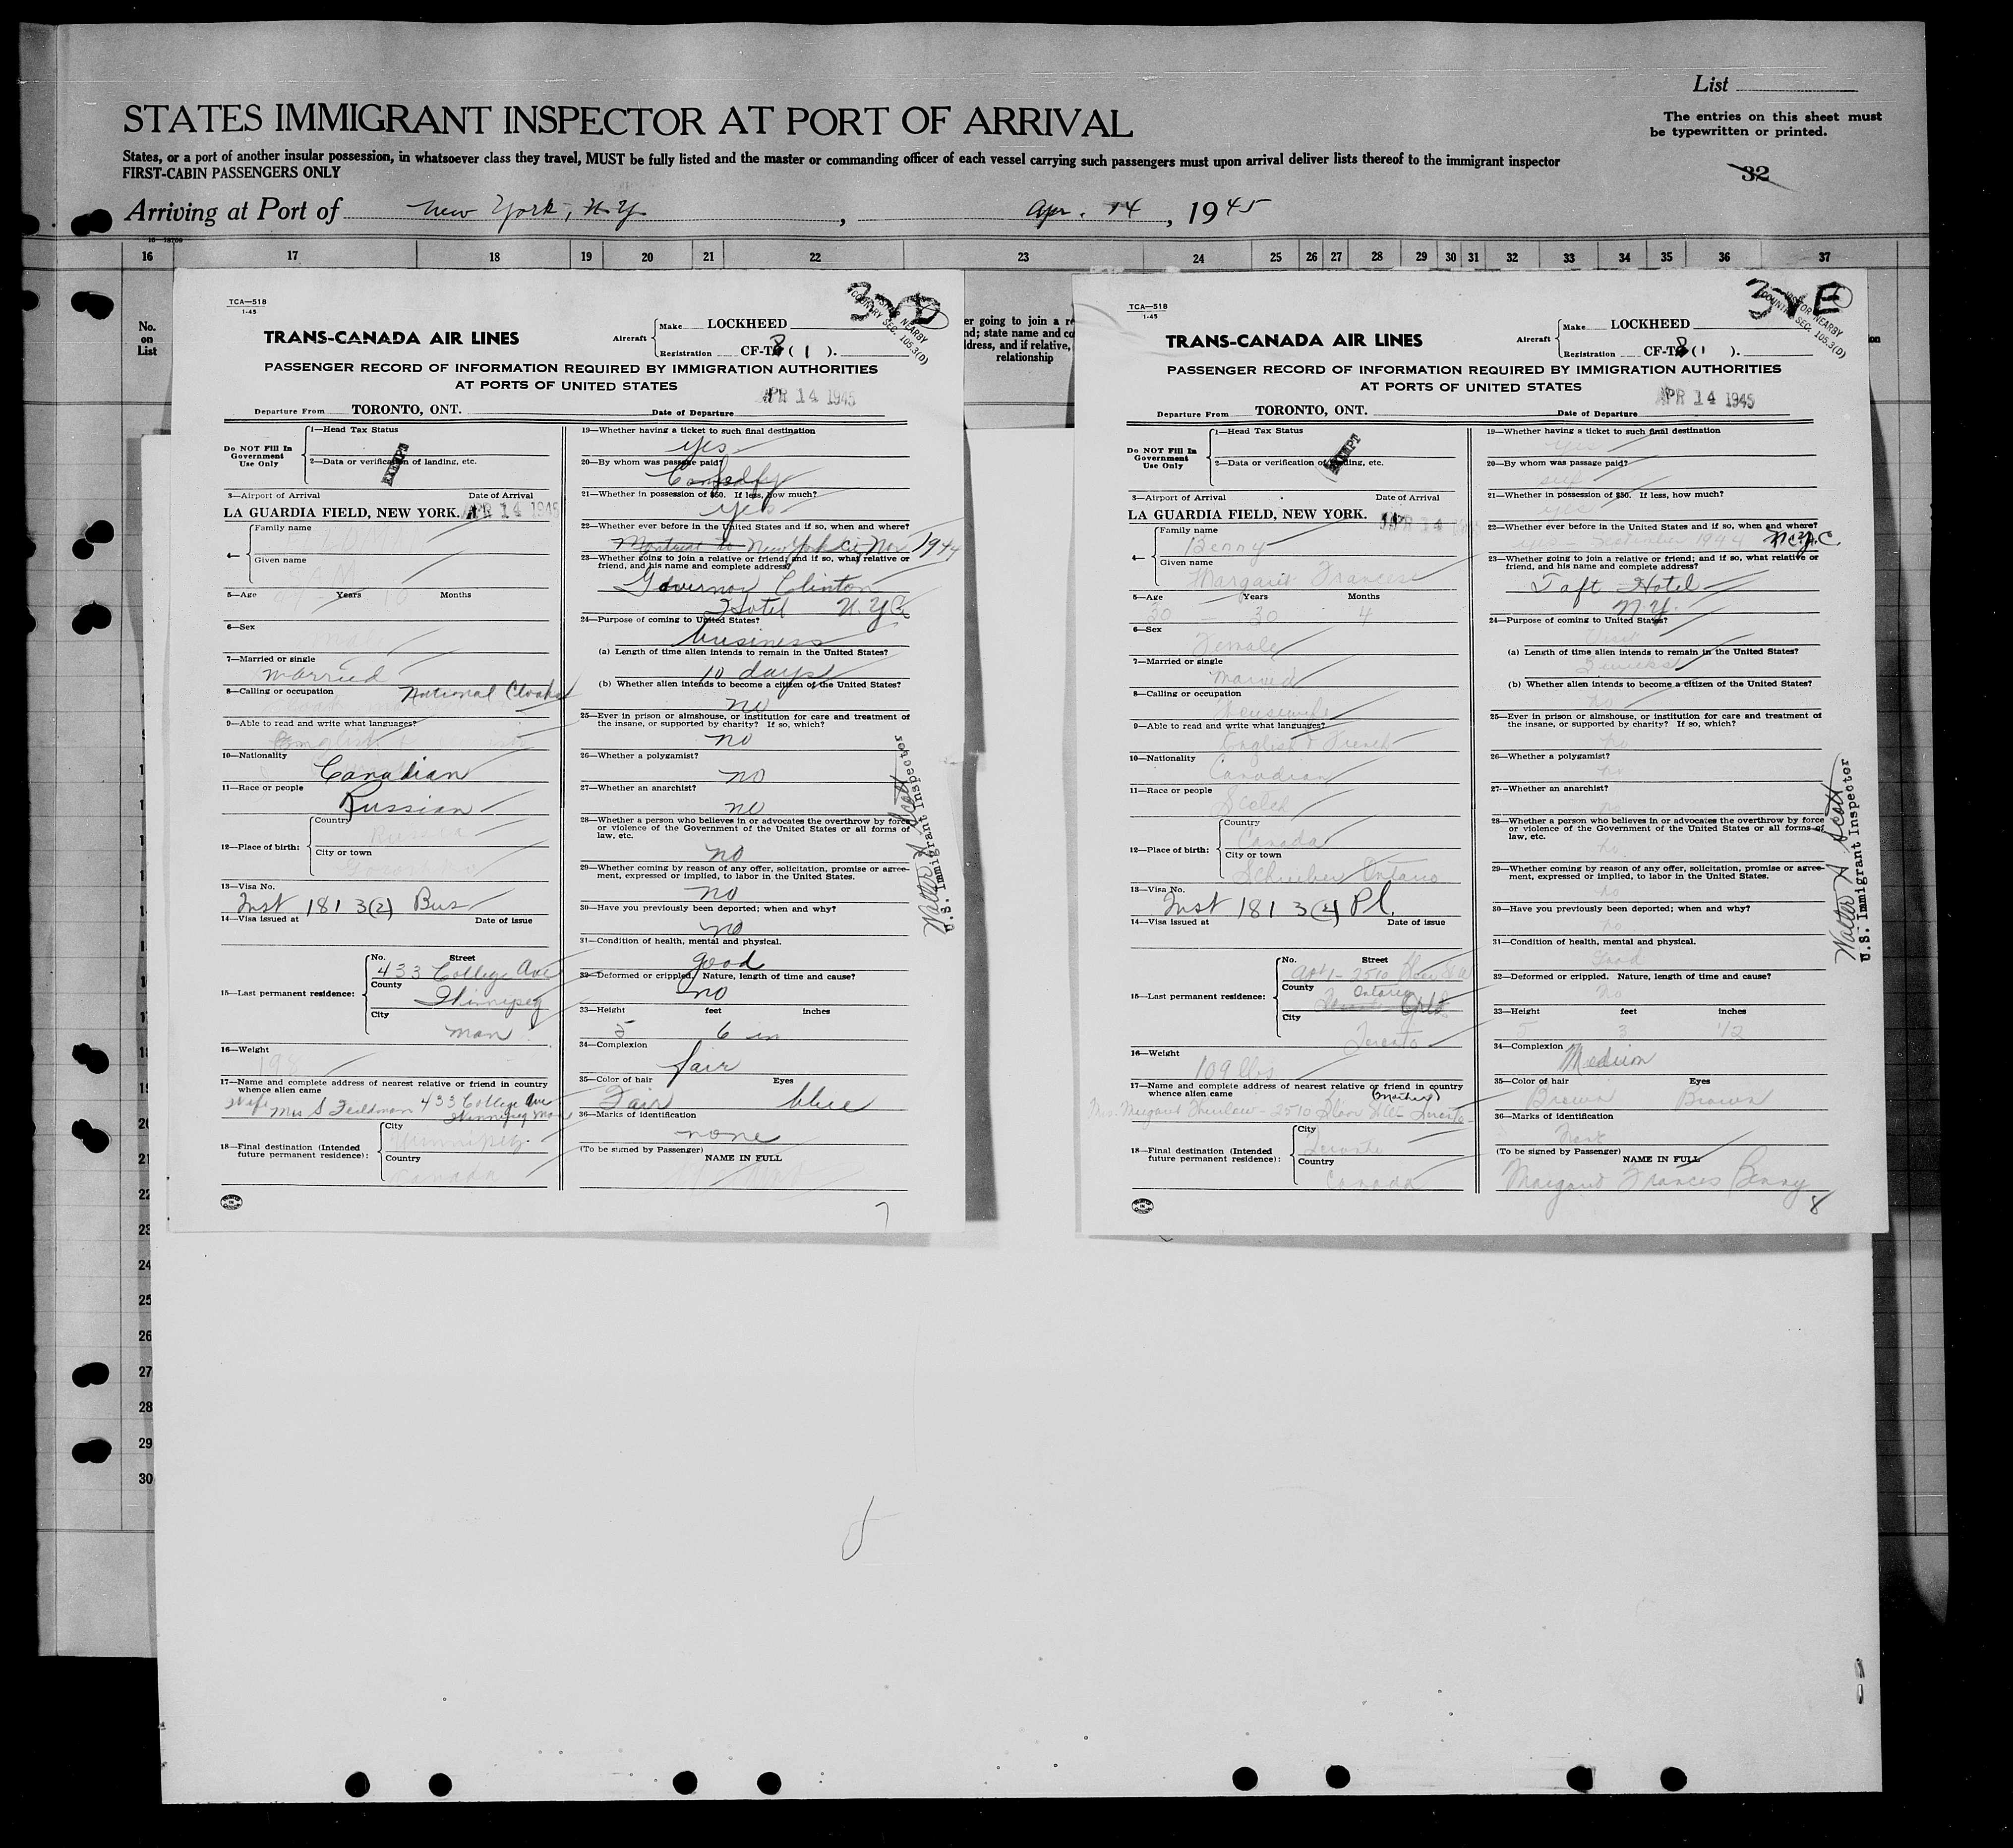 List
STATES IMMIGRANT INSPECTOR AT PORT OF ARRIVAL
The entries on this sheet must
be typewritten or printed.
States, or a port of another insular possession, in whatsoever class they travel, MUST be fully listed and the master or commanding officer of each vessel carrying such passengers must upon arrival deliver lists thereof to the immigrant inspector
FIRST-CABIN PASSENGERS ONLY
32
Arriving at Port of New York, N.Y. , Apr. 14 , 1945
16 17 18 19 20 21 22 23 24 25 26 27 28 29 30 31 32 33 34 35 36 37
No.
on
List
er going to join a re
nd; state name and co
ldress, and if relative,
relationship
TCA—518
1-45
TRANS-CANADA AIR LINES
Aircraft
Make LOCKHEED
Registration CF-T ( 1 ).
VISITOR NEARBY
COUNTRY SEC. 105.3(D)
PASSENGER RECORD OF INFORMATION REQUIRED BY IMMIGRATION AUTHORITIES
AT PORTS OF UNITED STATES
Departure From TORONTO, ONT. Date of Departure APR 14 1945
Do NOT Fill In
Government
Use Only
1—Head Tax Status
2—Data or verification of landing, etc.
EXEMPT
3—Airport of Arrival Date of Arrival
LA GUARDIA FIELD, NEW YORK. APR 14 1945
4—
Family name
Given name
5—Age Years Months
6—Sex
7—Married or single
married
8—Calling or occupation National Cloaks
9—Able to read and write what languages?
English
10—Nationality
Canadian
11—Race or people
Russian
12—Place of birth:
Country
Russia
City or town
13—Visa No.
Inst 181 3(2) Bus
14—Visa issued at Date of issue
15—Last permanent residence:
No. Street
433 College Ave
County
Winnipeg
City
Man
16—Weight
198
17—Name and complete address of nearest relative or friend in country
whence alien came
Wife Mrs S Feildman 433 College Ave
Winnipeg Man
18—Final destination (Intended
future permanent residence):
City
Winnipeg
Country
Canada
19—Whether having a ticket to such final destination
yes
20—By whom was passage paid?
21—Whether in possession of $50. If less, how much?
yes
22—Whether ever before in the United States and if so, when and where?
Montreal to New York City Nov 1944
23—Whether going to join a relative or friend; and if so, what relative or
friend, and his name and complete address?
Governor Clinton
Hotel N.Y.C.
24—Purpose of coming to United States?
business
(a) Length of time alien intends to remain in the United States?
10 days
(b) Whether alien intends to become a citizen of the United States?
no
25—Ever in prison or almshouse, or institution for care and treatment of
the insane, or supported by charity? If so, which?
no
26—Whether a polygamist?
no
27—Whether an anarchist?
no
28—Whether a person who believes in or advocates the overthrow by force
or violence of the Government of the United States or all forms of
law, etc.
no
29—Whether coming by reason of any offer, solicitation, promise or agree-
ment, expressed or implied, to labor in the United States.
no
30—Have you previously been deported; when and why?
no
31—Condition of health, mental and physical.
good
32—Deformed or crippled. Nature, length of time and cause?
no
33—Height feet inches
5 6 in
34—Complexion
fair
35—Color of hair Eyes
Fair blue
36—Marks of identification
none
(To be signed by Passenger)
NAME IN FULL
Walter A Scott
U.S. Immigrant Inspector
7
TCA—518
1-45
TRANS-CANADA AIR LINES
Aircraft
Make LOCKHEED
Registration CF-T ( 1 ).
VISITOR NEARBY
COUNTRY SEC. 105.3(D)
PASSENGER RECORD OF INFORMATION REQUIRED BY IMMIGRATION AUTHORITIES
AT PORTS OF UNITED STATES
Departure From TORONTO, ONT. Date of Departure APR 14 1945
Do NOT Fill In
Government
Use Only
1—Head Tax Status
2—Data or verification of landing, etc.
EXEMPT
3—Airport of Arrival Date of Arrival
LA GUARDIA FIELD, NEW YORK. APR 14
4—
Family name
Benny
Given name
Margaret Frances
5—Age Years Months
30 30 4
6—Sex
Female
7—Married or single
Married
8—Calling or occupation
Housewife
9—Able to read and write what languages?
English & French
10—Nationality
Canadian
11—Race or people
Scotch
12—Place of birth:
Country
Canada
City or town
Schreiber Ontario
13—Visa No.
Inst 181 3(4) Pl.
14—Visa issued at Date of issue
15—Last permanent residence:
No. Street
Apt 1 - 2510 Bloor St W
County
Ontario
City
Toronto
16—Weight
109 lbs
17—Name and complete address of nearest relative or friend in country
whence alien came (Mother)
Mrs. Margaret - 2510 Bloor St W - Toronto
18—Final destination (Intended
future permanent residence):
City
Toronto
Country
Canada
19—Whether having a ticket to such final destination
yes
20—By whom was passage paid?
self
21—Whether in possession of $50. If less, how much?
yes
22—Whether ever before in the United States and if so, when and where?
yes - September 1944 N.Y.C
23—Whether going to join a relative or friend; and if so, what relative or
friend, and his name and complete address?
Taft Hotel
N.Y.
24—Purpose of coming to United States?
Visit
(a) Length of time alien intends to remain in the United States?
2 weeks
(b) Whether alien intends to become a citizen of the United States?
no
25—Ever in prison or almshouse, or institution for care and treatment of
the insane, or supported by charity? If so, which?
no
26—Whether a polygamist?
no
27—Whether an anarchist?
no
28—Whether a person who believes in or advocates the overthrow by force
or violence of the Government of the United States or all forms of
law, etc.
no
29—Whether coming by reason of any offer, solicitation, promise or agree-
ment, expressed or implied, to labor in the United States.
no
30—Have you previously been deported; when and why?
no
31—Condition of health, mental and physical.
Good
32—Deformed or crippled. Nature, length of time and cause?
no
33—Height feet inches
5 3 1/2
34—Complexion
Medium
35—Color of hair Eyes
Brown Brown
36—Marks of identification
(To be signed by Passenger)
NAME IN FULL
Margaret Frances Benny
Walter A Scott
U.S. Immigrant Inspector
8
22
23
24
25
26
27
28
29
30